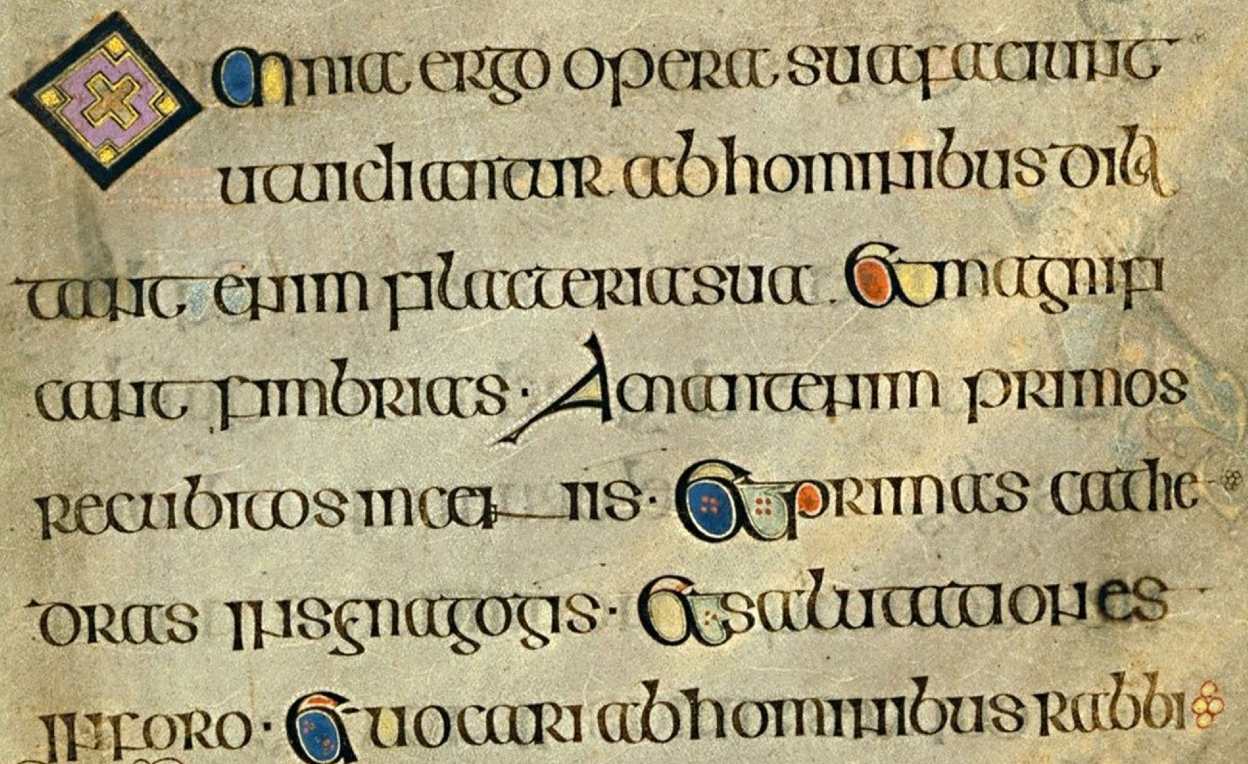 Omnia ergo opera sua faciunt
ut uidiantur ab hominibus dila
tant enim filacteria sua. Et magnifi
cant fimbrias · Amant enim primos
recubitos in cenis · Et primas cathe
dras in sinagogis · Et salutationes
in foro · Et uocari ab hominibus rabbi